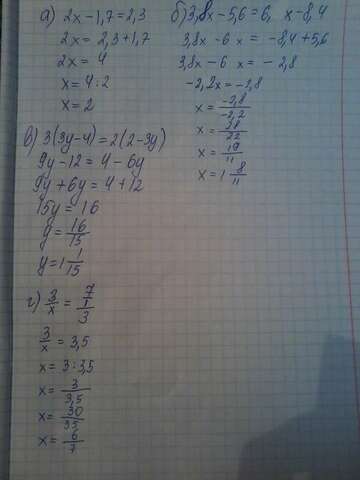 а) 2x-1,7=2,3
2x=2,3+1,7
2x=4
x=4:2
x=2
б) 3,8x-5,6=6, x-8,4
3,8x-6 x = -8,4+5,6
3,8x-6 x = -2,8
-2,2x=-2,8
x = -2,8/-2,2
x = 28/22
x = 19/11
x = 1 8/11
в) 3(3y-4)=2(2-3y)
9y-12=4-6y
9y+6y=4+12
15y=16
y = 16/15
y = 1 1/15
г) 3/x = 7/1/3
3/x = 3,5
x = 3:3,5
x = 3/3,5
x = 30/35
x = 6/7